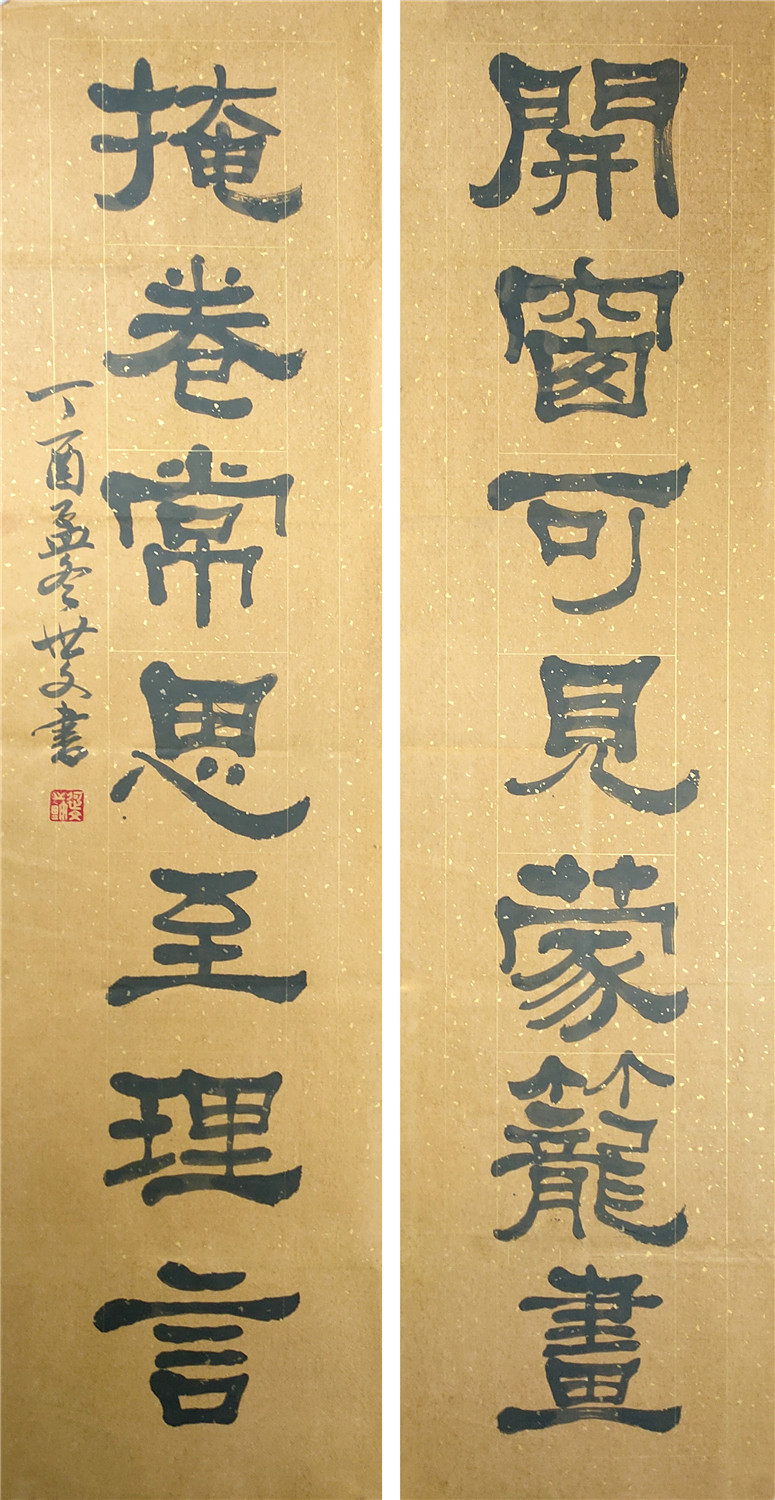 開窗可見蒙籠畫
掩卷常思至理言
丁酉孟冬世文書